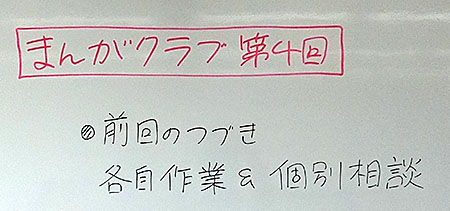 まんがクラブ 第4回
◎前回のつづき
各自作業 & 個別相談